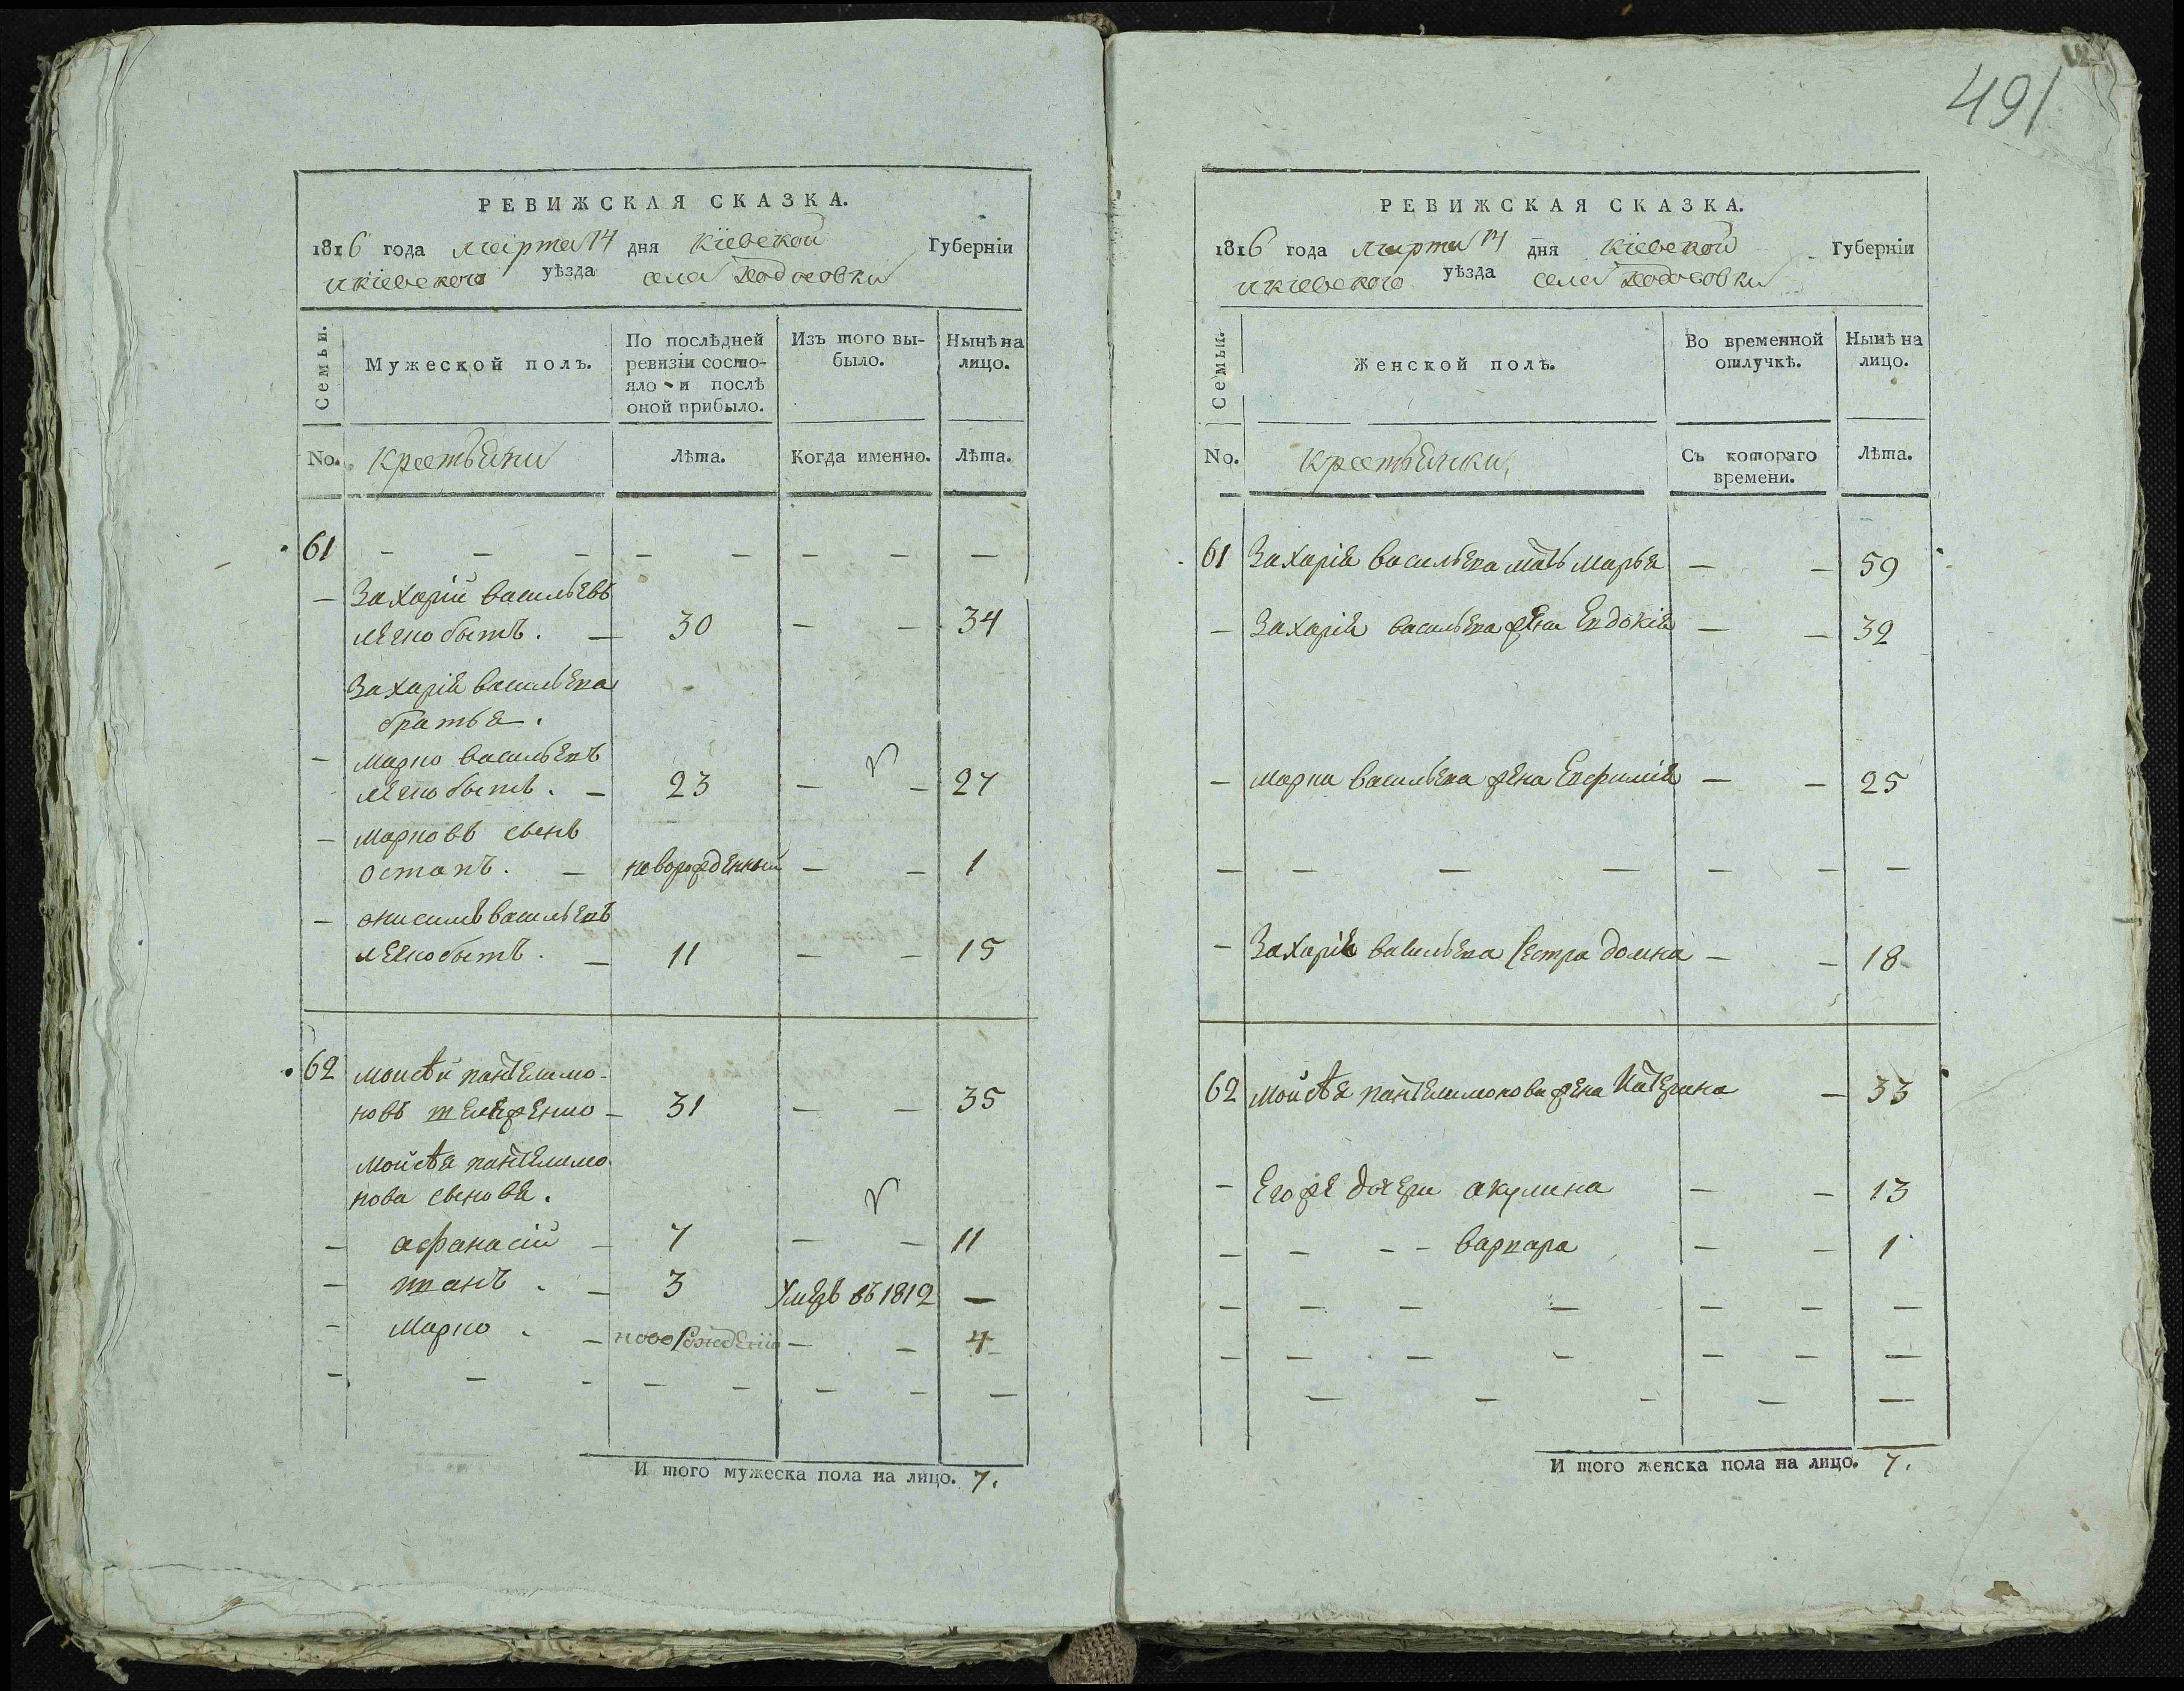 491
РЕВИЖСКАЯ СКАЗКА.
1816 года марта 14 дня Кіевской Губерніи
и кіевского уѣзда села Ходосовки
Семьи.
Мужеской полъ.
По послѣдней ревизіи состо-
яло и послѣ
оной прибыло.
Изъ того вы-
было.
Нынѣ на
лицо.
No. крестьяни
Лѣта.
Когда именно.
Лѣта.
61 - - - - - - - -
- Захарій васильевъ
легкобытъ. - 30 - - 34
Захарія васильева
братья.
- марко васильевъ
легкобытъ. - 23 - - 27
- марковъ сынъ
остапъ. - новорожденный - - 1
- онисимъ васильевъ
легкобытъ. - 11 - - 15
62 моисѣй пантелимо-
новъ - 31 - - 35
мойсѣя пантелимо
нова сыновя.
- афанасій - 7 - - 11
- иванъ. - 3 Умеръ въ 1812 -
- марко. - новорожденій - - 4
- - - - - - - -
И того мужеска пола на лицо. 7.
РЕВИЖСКАЯ СКАЗКА.
1816 года марта 14 дня Кіевской Губерніи
и кіевского уѣзда села Ходосовки
Семьи.
Женской полъ.
Во временной
отлучкѣ.
Нынѣ на
лицо.
No. крестьянки
Съ котораго
времени.
Лѣта.
61 Захарія васильева мать марья - - 59
- Захарія васильева жена Евдокія - - 32
- марка васильева жена Евфимія - - 25
- - - - - - -
- Захарія васильева сестра домна - - 18
62 мойсѣя пантелимонова жена Катерина - 33
- Его же дочери акулина - - 13
- - - - варвара - - 1
- - - - - - -
- - - - - - -
- - - - -
И того женска пола на лицо. 7.